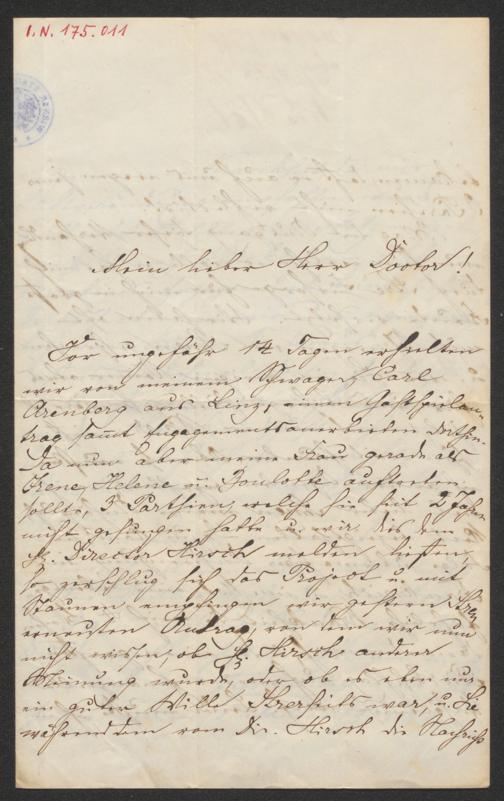 I. N. 175.011
Mein lieber Herr Doctor!
Vor ungefähr 14 Tagen erhielten
wir von meinem Schwager, Carl
Arenberg aus Linz, einen Gastspielan-
trag samt Engagementsanerbieten dorthin.
Da nun aber meine Frau gerade als
Irene, Helene u. Boulotte auftreten
sollte, 3 Parthien, welche sie seit 2 Jahren
nicht gesungen hatte u. wir dies dem
H. Director Hirsch melden ließen,
so zerschlug sich das Project u. mit
Staunen empfingen wir gestern Ihren
erneuten Antrag, von dem wir nun
nicht wissen, ob H. Hirsch anderer
Meinung wurde, oder ob es eben nur
ein guter Wille Ihrerseits war, u. Sie
währenddem vom Dir. Hirsch die Nachricht